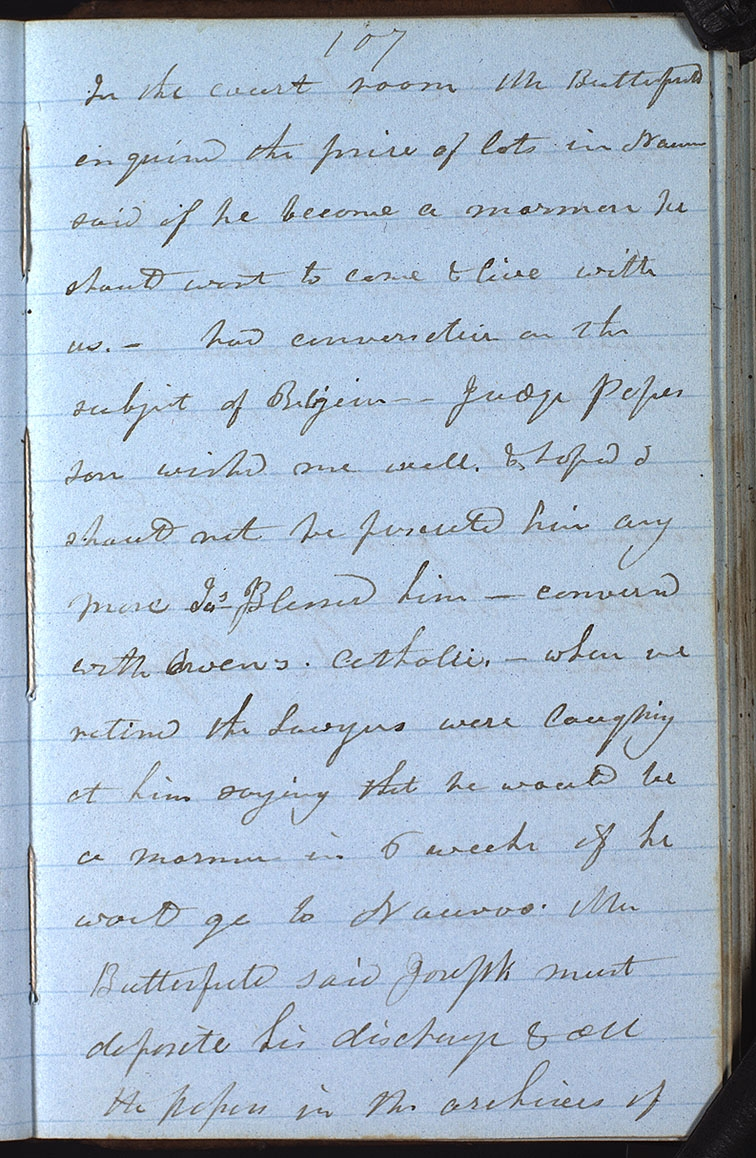 107
In the court room Mr Butterfield
enquired the price of lots in Nauvoo
said if he become a mormon he
should want to come & live with
us. - had conversation on the
subject of Religion -- Judge Popes
son wished me well. & hoped I
should not be persecuted him any
more Jos Blessed him — conversed
with Owens. Catholic. - when we
retired the Lawyers were laughing
at him saying that he would be
a mormon in 6 weeks if he
would go to Nauvoo. Mr
Butterfield said Joseph must
deposite his discharge & all
the papers in the archives of